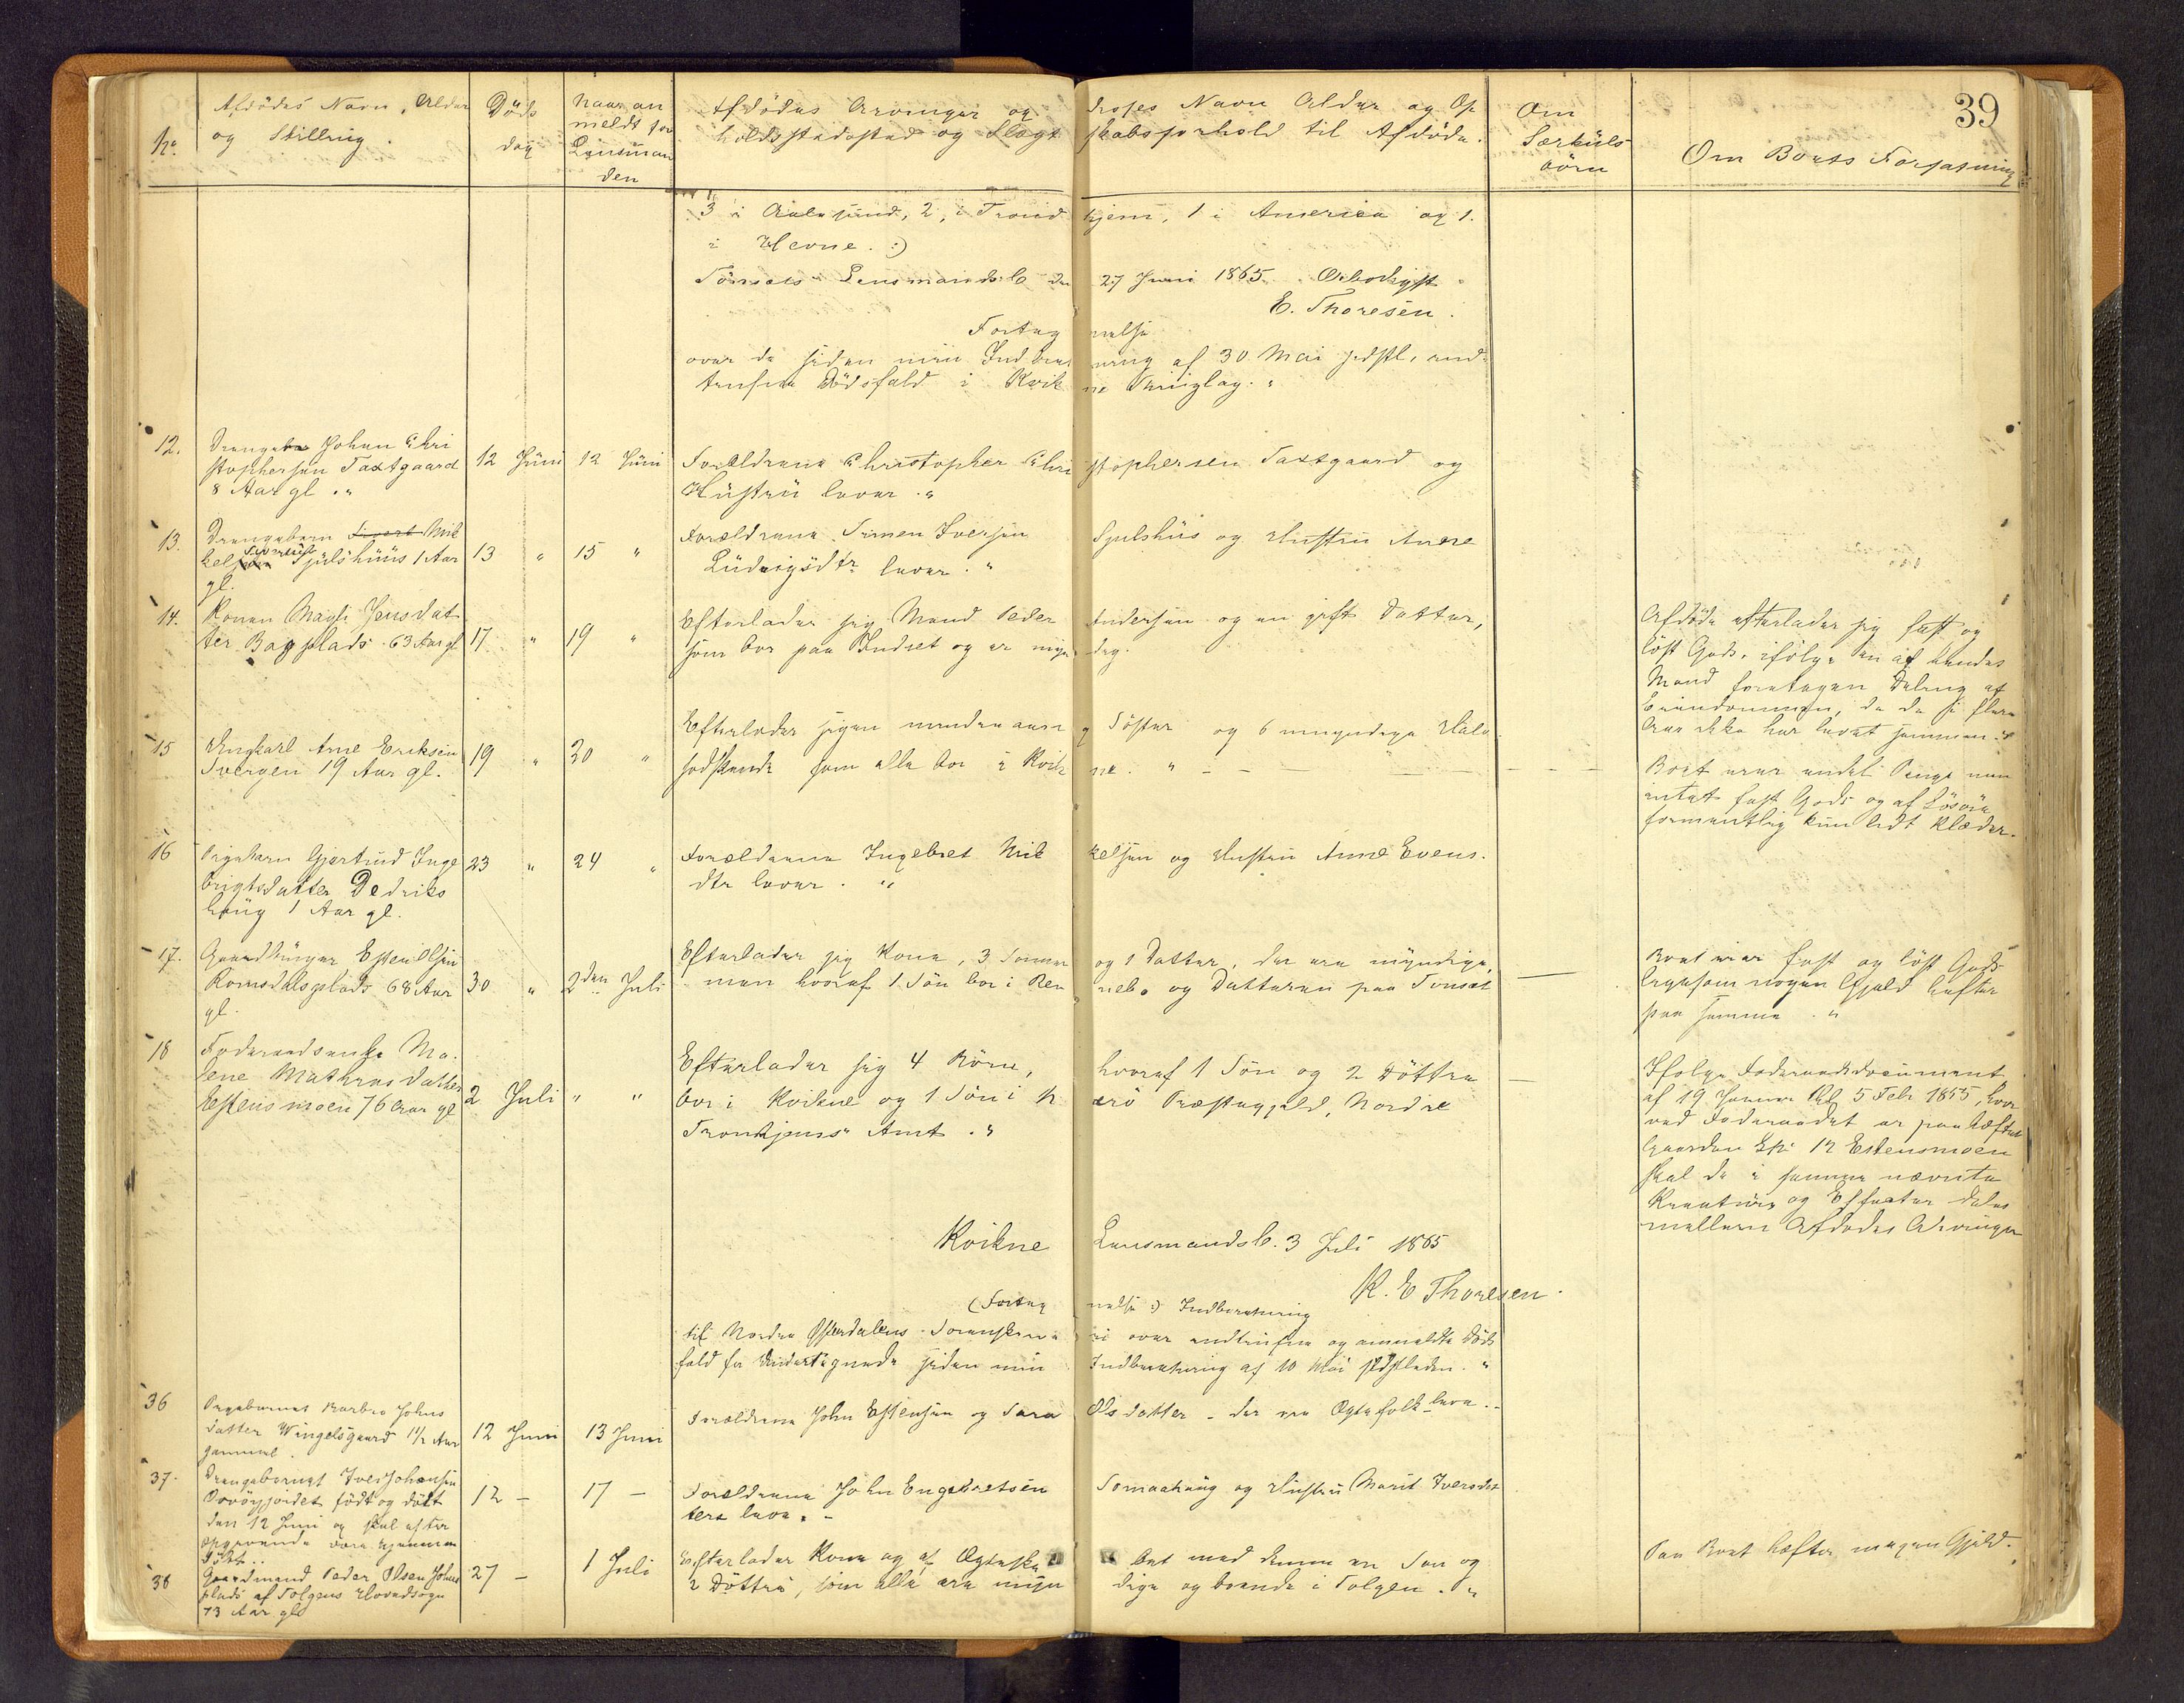 39
No. Afdödes Navn, Alder og Stilling. Döds dag Naar an meldt for Lensman den Afdödes Arvinger og disses Navn Alder og Op holdsstedssted og Slægt skabsforhold til Afdöde. Om Særkuls börn Om Boets Forfatning
3 i Aalesund, 2, i Trond hjem, 1 i America og 1.
i Hevne. :)
Tönsets Lensmandsb. den 27 Juni 1865. Ærbödigst
E. Thoresen.
Forteg nelse
over de siden min Indberet ning af 30 Mai sidstl. ind-
trufne Dödsfald i Kvik ne Thinglag. "
12. Drengebarn Johan Chri
stophersen Taxtgaard
8 Aar gl. "
12 Juni 12 Juni
Forældrene Christopher Chri stophersen Taxtgaard og
Hustru lever. "
13. Drengebarn Sivert Mik
kel Simensen Sjulshuus 1 Aar
gl.
13 " 15 "
Forældrene Simen Iversen Sjulshus og Hustru Anne
Ludvigsdtr lever. "
14. Konen Magli Jensdat
ter Bagplads 63 Aar gl
17 " 19 "
Efterlader sig Mand Peder Andersen og en gift Datter,
som bor paa Indset og er myn dig.
Afdöde efterlader sig fast og
löst Gods, ifölge en af hendes
Mand foretagen Deling af
Eiendommen, da de i flere
Aar ikke har levet sammen. "
15 Ungkarl Arne Eriksen
Svergen 19 Aar gl.
19 " 20 "
Efterlader sig en mindreaari g Söster og 6 umyndige Halv
södskende som alle bor i Kvik ne. "
Boet eier endel Penge men
intet fast Gods og af Lösöre
formentlig kun lidt Klæder.
16 Pigebarn Gjertrud Inge
brigtsdatter Dedriks
haug 1 Aar gl.
23 " 24 "
Forældrene Ingebret Mik kelsen og Hustru Anne Evens.
dtr lever. "
17. Gaardbruger Esten Olsen
Romsdalsplads 68 Aar
gl.
30 " 2den Juli
Efterlader sig Kone, 3 Sönner og 1 Datter, der ere myndige,
men hvoraf 1 Sön bor i Ren nebo og Datteren paa Tönset
Boet eier fast og löst Gods
ligesom nogen Gjæld hefter
paa samme. "
18 Föderaadsenke Ma-
lene Mathiasdatter
Estensmoen 76 Aar gl
2 Juli " "
Efterlader sig 4 Börn, hvoraf 1 Sön og 2 Döttre
bor i Kvikne og 1 Sön i N erö Præstegjeld, Nordre
Trondhjems Amt. "
Ifölge Föderaadsdocument
af 19 Januar Thl. 5 Febr 1855, hvor
ved Föderaadet er paaheftet
Gaarden Estensmoen
skal de i samme nævnte
Kreaturer og Effecter deles
mellem Afdödes Arvinger
Kvikne Lensmandsb. 3 Juli 1865
K. E Thoresen.
(Forteg nelse :) Indberetning
til Nordre Österdalens Sorenskrive ri over indtrufne og anmeldte Döds
fald for Undertegnede siden min Indberetning af 10 Mai sidstleden. "
36 Pigebarnet Barbro Johns
datter Wingelsgaard 1½ Aar
gammel.
12 Juni 13 Juni
Forældrene John Estensen og Sara Olsdatter - der ere Ægtefolk lever. -
37. Drengebarnet Iver Johnsen
födt og död
den 12 Juni og skal efter
Opgivende være hjemme
döbt..
12 - 17 -
Forældrene John Engebretsen Tomashaug og Hustru Marit Iversdat
ter lever. -
38 Gaardmand Peder Olsen Johns
plads af Tolgens Hovedsogn
73 Aar gl
27 - 1 Juli
Efterlader Kone og af Ægteska bet med denne en Sön og
2 Döttre, som alle ere myn dige og boende i Tolgen. "
Paa Boet hefter megen Gjeld.